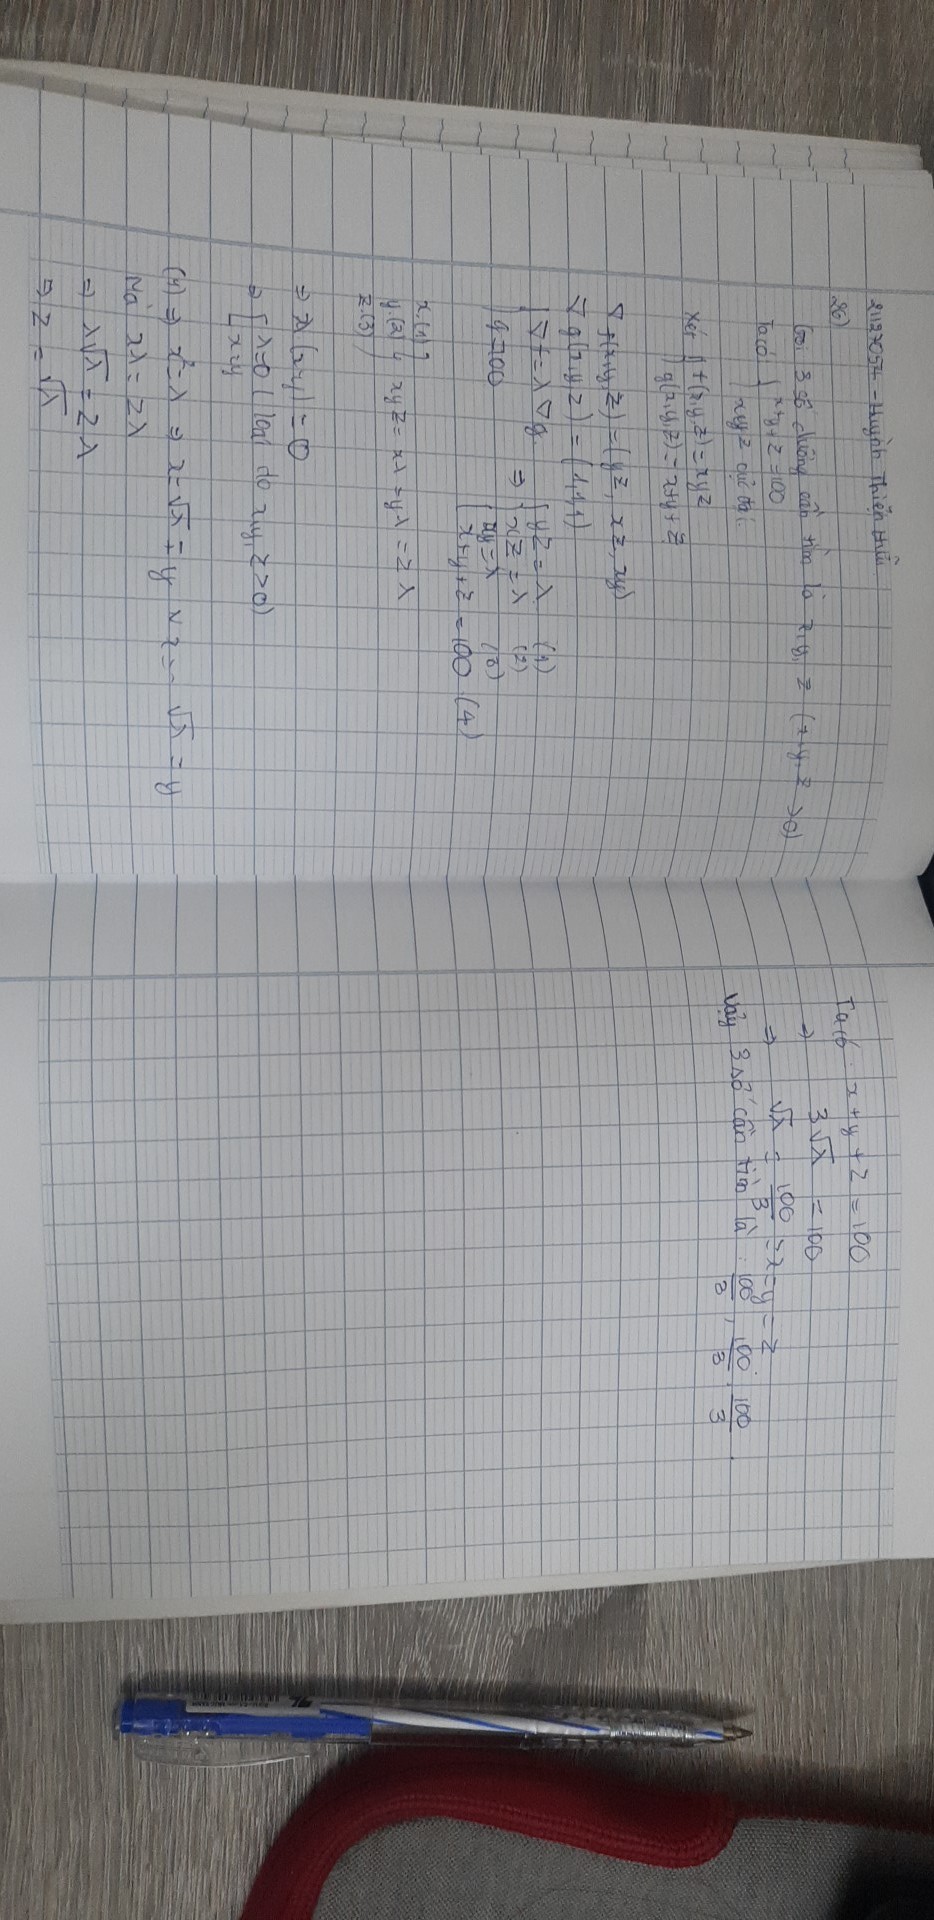 21127054 - Huỳnh Thiện Hữu
26)
Gọi 3 số dương cần tìm là x, y, z (x, y, z > 0)
Ta có { x+y+z = 100
xyz cực đại.
Xét { f(x,y,z) = xyz
g(x,y,z) = x+y+z
∇f(x,y,z) = (yz, xz, xy)
∇g(x,y,z) = (1,1,1)
{ ∇f = λ∇g ⇒ { yz = λ (1)
xz = λ (2)
g=100 xy = λ (3)
x+y+z = 100 (4)
x.(1)
y.(2) } xyz = xλ = yλ = zλ
z.(3)
⇒ λ(x-y) = 0
⇒ [ λ=0 (loại do x,y,z>0)
x=y
(4) ⇒ x² = λ ⇒ x = √λ = y v x = -√λ = y
Mà xλ = zλ
⇒ λ√λ = zλ
⇒ z = √λ
Ta có: x + y + z = 100
⇒ 3√λ = 100
⇒ √λ = 100/3 = x = y = z
Vậy 3 số cần tìm là : 100/3, 100/3, 100/3.